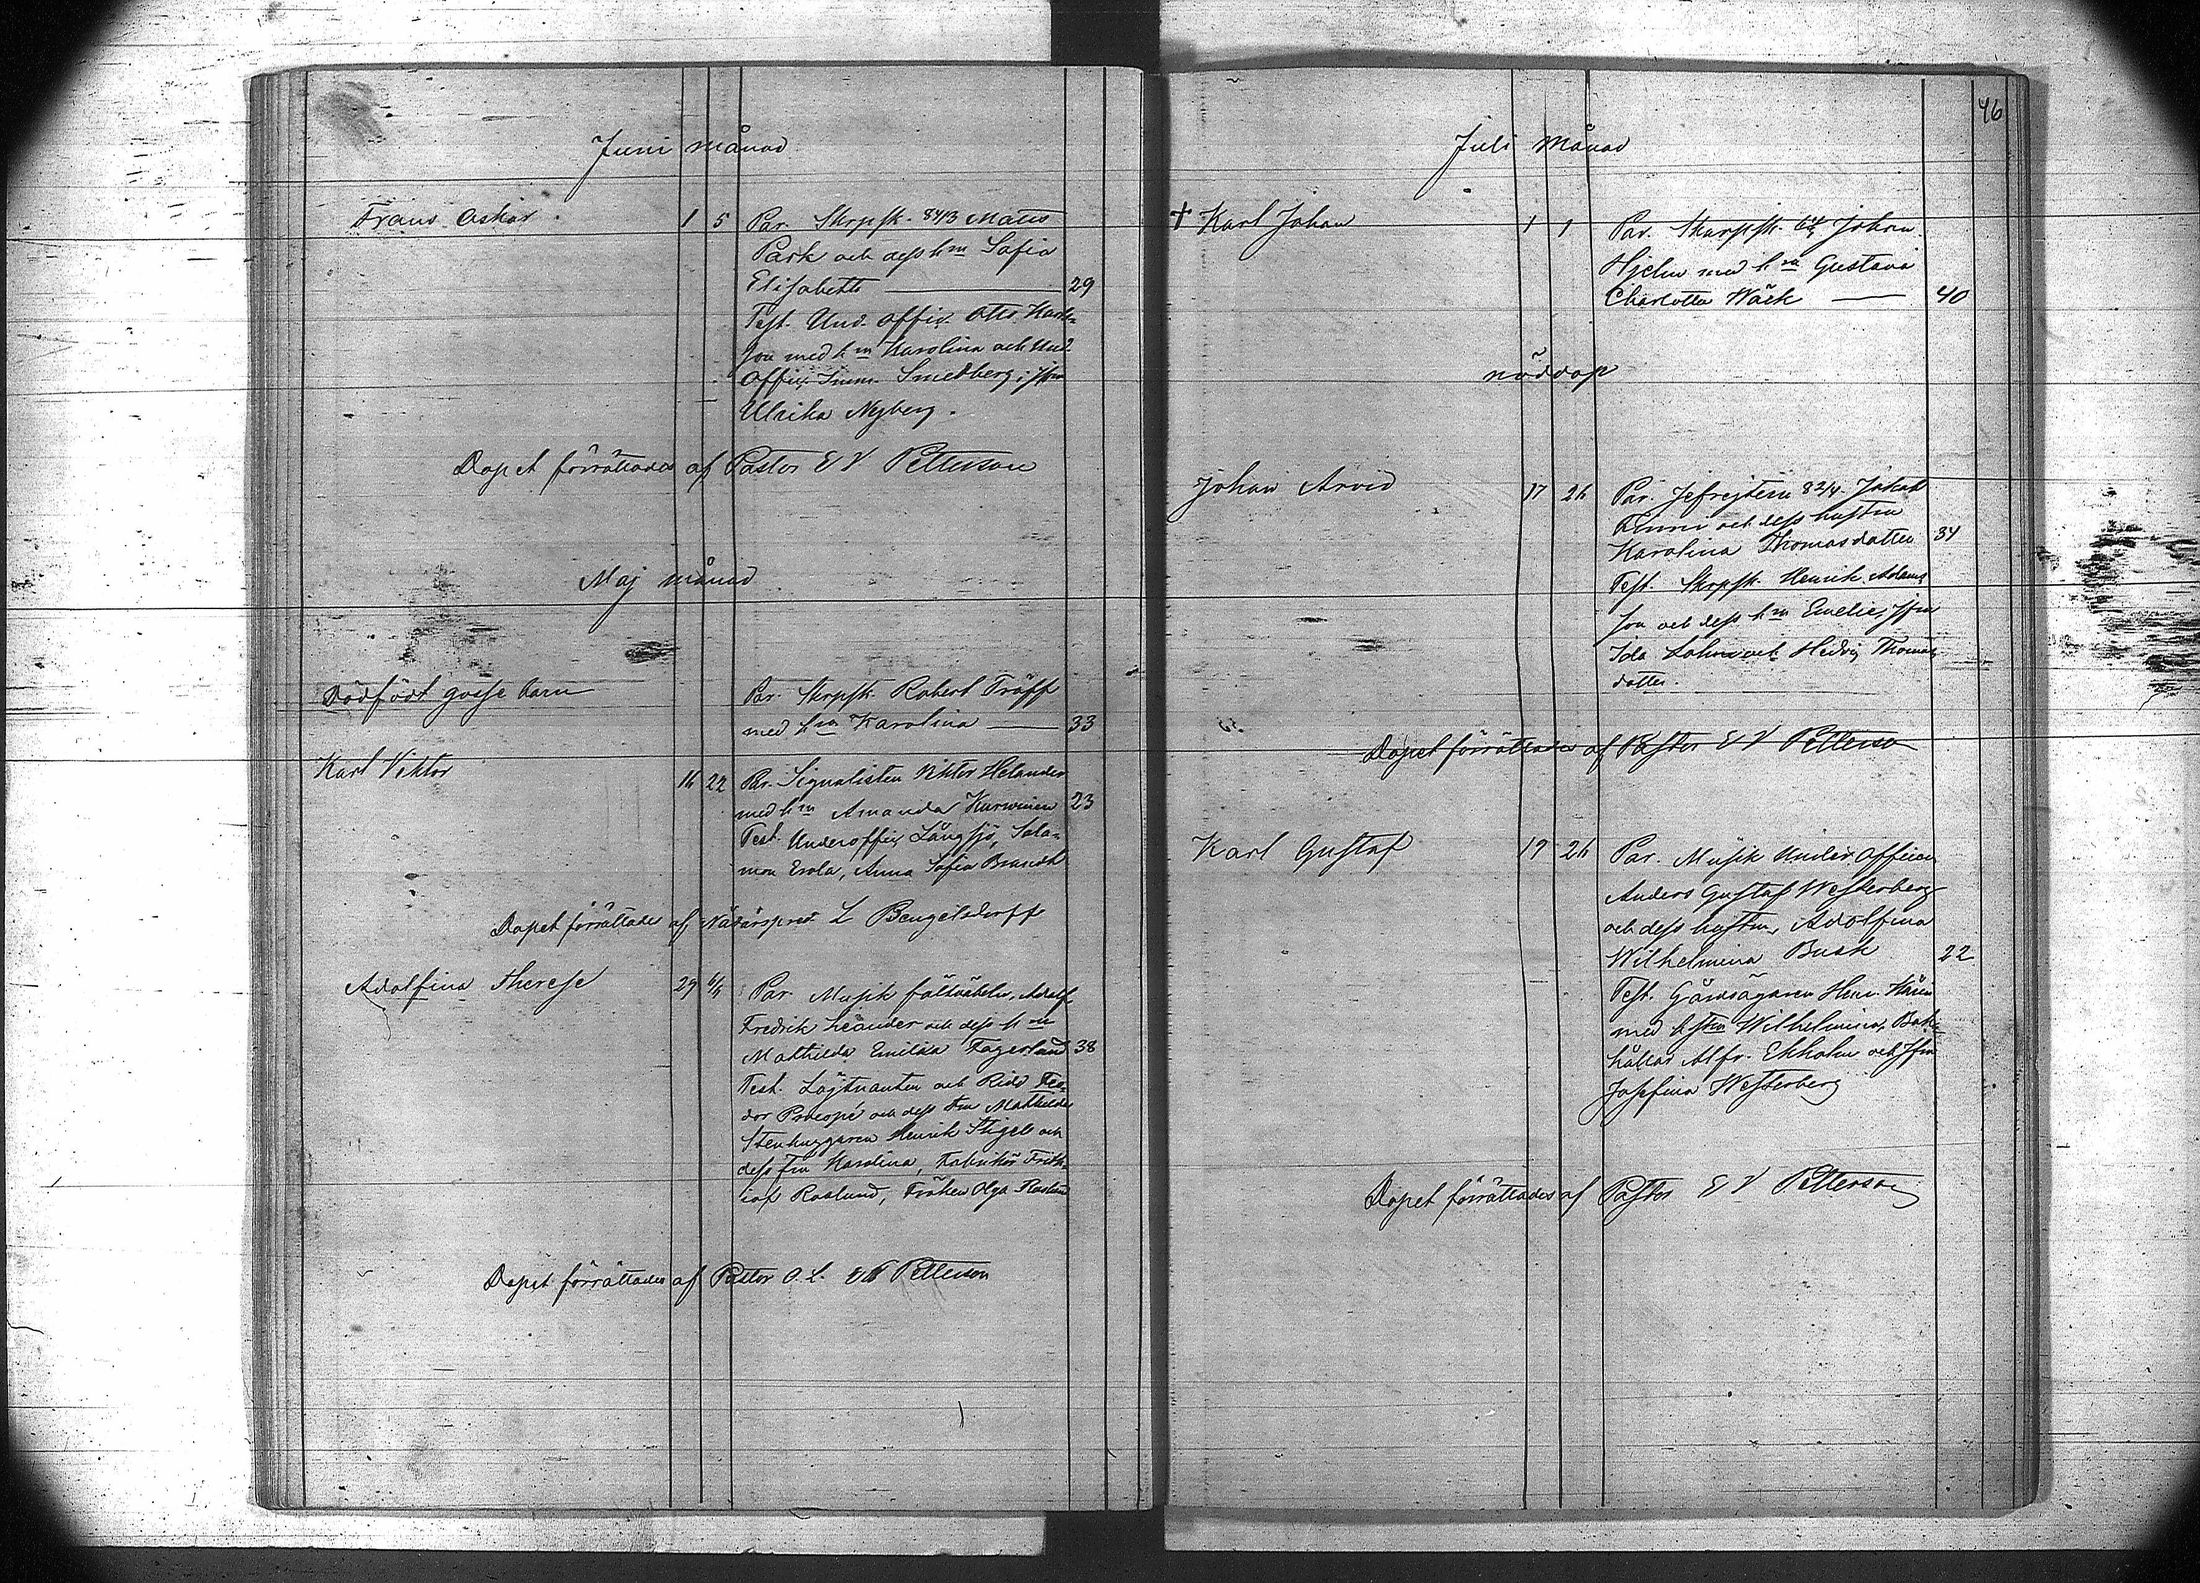 Juni månad
Frans Oskar. 1 5 Par. Skrpsk. 84/3 Matts
Park och dess h:m Sofia
Elisabeth — 29
Test. Und. offic. Otto Karls-
son med h:m Karolina och Und
offic. Simm. Smedberg; Jfru
Ulrika Nyberg.
Dopet förrättades af Pastor E V Petterson
Maj månad
Dödfödt gosse barn Par. Skrpsk. Robert Träff
med h:m Karolina — 33
Karl Viktor 16 22 Par. Signalisten Viktor Helander
med h:m Amanda 23
Test. Underoffic. Långsjö, Salo-
mon Erola, Anna Sofia Brandt
Dopet förrättades af Nådårspred. L Bengelsdorff
Adolfina Therese 29 6/7 Par. Musik fältväbeln Adolf
Fredrik Leander och dess h:m
Mathilda Emilia Fagerlund 38
Test. Löjtnanten och Ridd Feo-
dor Procopé och dess Fru Mathilda
Stenhuggaren Henrik Stigell och
dess fru Karolina, Frith-
iof Roslund, Fröken Olga Roslund
Dopet förrättades af Pastor O. L. E V Petterson
46
Juli Månad
† Karl Johan 1 1 Par. Skarpsk. Johan
Hjelm med h:m Gustava
Charlotta Wäck — 40
nöddop
Johan Arvid 17 26 Par. Jefrejtern 82/4. Jakob
och dess hustru
Karolina Thomasdotter 34
Test. Skrpsk. Henrik Adams-
son och dess h:m Emelie, Jfru
Ida och Hedvig Thomas
dotter.
Dopet förrättades af Pastor E V Petterson
Karl Gustaf 19 26 Par. Musik Under Officer
Anders Gustaf Westerberg
och dess hustru, Adolfina
Wilhelmina Busk 22
Test. Gårdsägaren Henr.
med hstru Wilhelmina, Bok-
hållar Alfr. Ekholm och Jfru
Josefina Westerberg
Dopet förrättades af Pastor E V Petterson